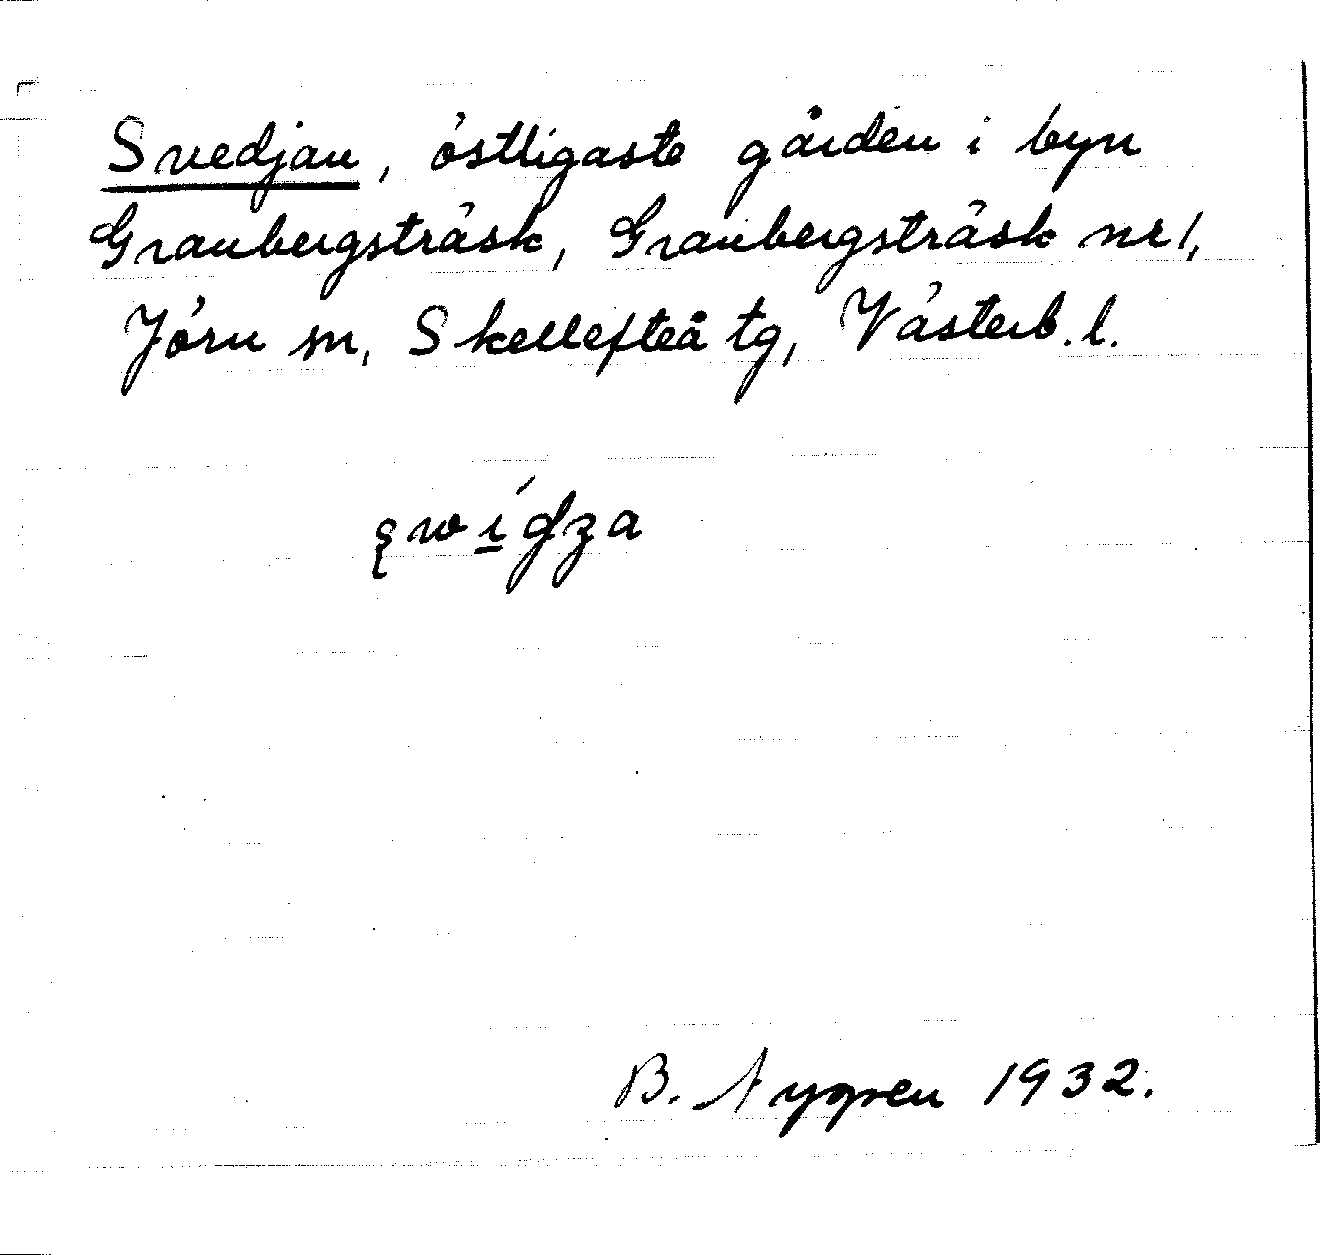 Svedjan, östligaste gården i byn
Granbergsträsk, Granbergsträsk nr 1,
Jörn sn, Skellefteå tg, Västerb. l.
B. Nygren 1932.